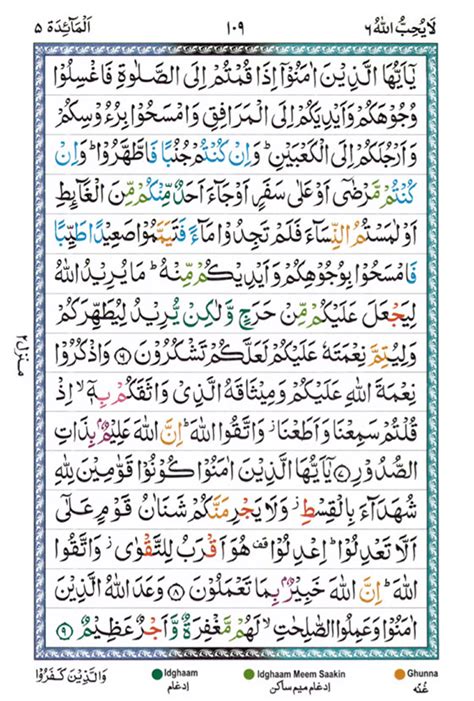 لَا يُحِبُّ اللهُ ٦ ١٠٩ اَلْمَآئِدَة ٥
يٰۤاَيُّهَا الَّذِيْنَ اٰمَنُوْۤا اِذَا قُمْتُمْ اِلَى الصَّلٰوةِ فَاغْسِلُوْا
وُجُوْهَكُمْ وَاَيْدِيَكُمْ اِلَى الْمَرَافِقِ وَامْسَحُوْا بِرُءُوْسِكُمْ
وَاَرْجُلَكُمْ اِلَى الْكَعْبَيْنِ ؕ وَاِنْ كُنْتُمْ جُنُبًا فَاطَّهَّرُوْا ؕ وَاِنْ
كُنْتُمْ مَّرْضٰۤى اَوْ عَلٰى سَفَرٍ اَوْ جَآءَ اَحَدٌ مِّنْكُمْ مِّنَ الْغَآئِطِ
اَوْ لٰمَسْتُمُ النِّسَآءَ فَلَمْ تَجِدُوْا مَآءً فَتَيَمَّمُوْا صَعِيْدًا طَيِّبًا
فَامْسَحُوْا بِوُجُوْهِكُمْ وَاَيْدِيْكُمْ مِّنْهُ ؕ مَا يُرِيْدُ اللهُ
لِيَجْعَلَ عَلَيْكُمْ مِّنْ حَرَجٍ وَّلٰكِنْ يُّرِيْدُ لِيُطَهِّرَكُمْ
وَلِيُتِمَّ نِعْمَتَهٗ عَلَيْكُمْ لَعَلَّكُمْ تَشْكُرُوْنَ ۝٦ وَاذْكُرُوْا
نِعْمَةَ اللهِ عَلَيْكُمْ وَمِيْثَاقَهُ الَّذِيْ وَاثَقَكُمْ بِهٖۤ ۙ اِذْ
قُلْتُمْ سَمِعْنَا وَاَطَعْنَا ز وَاتَّقُوا اللهَ ؕ اِنَّ اللهَ عَلِيْمٌۢ بِذَاتِ
الصُّدُوْرِ ۝٧ يٰۤاَيُّهَا الَّذِيْنَ اٰمَنُوْا كُوْنُوْا قَوّٰمِيْنَ لِلّٰهِ
شُهَدَآءَ بِالْقِسْطِ ز وَلَا يَجْرِمَنَّكُمْ شَنَاٰنُ قَوْمٍ عَلٰۤى
اَلَّا تَعْدِلُوْا ؕ اِعْدِلُوْا قف هُوَ اَقْرَبُ لِلتَّقْوٰى ز وَاتَّقُوا
اللهَ ؕ اِنَّ اللهَ خَبِيْرٌۢ بِمَا تَعْمَلُوْنَ ۝٨ وَعَدَ اللهُ الَّذِيْنَ
اٰمَنُوْا وَعَمِلُوا الصّٰلِحٰتِ ۙ لَهُمْ مَّغْفِرَةٌ وَّاَجْرٌ عَظِيْمٌ ۝٩
منزل ٢
وَالَّذِيْنَ كَفَرُوْا
Idghaam Idghaam Meem Saakin Ghunna
ادغام ادغام میم ساکن غنّہ